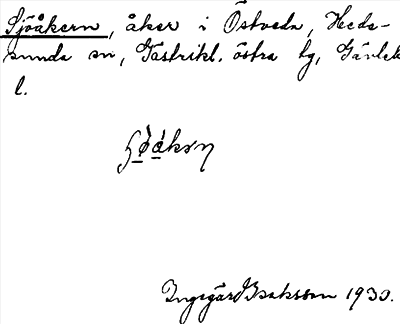 Sjöåkern, åker i Östveda, Heds-
sunda sn, Gästrikl. östra tg, Gävleb.
l.
Ingegärd Isaksson 1930.